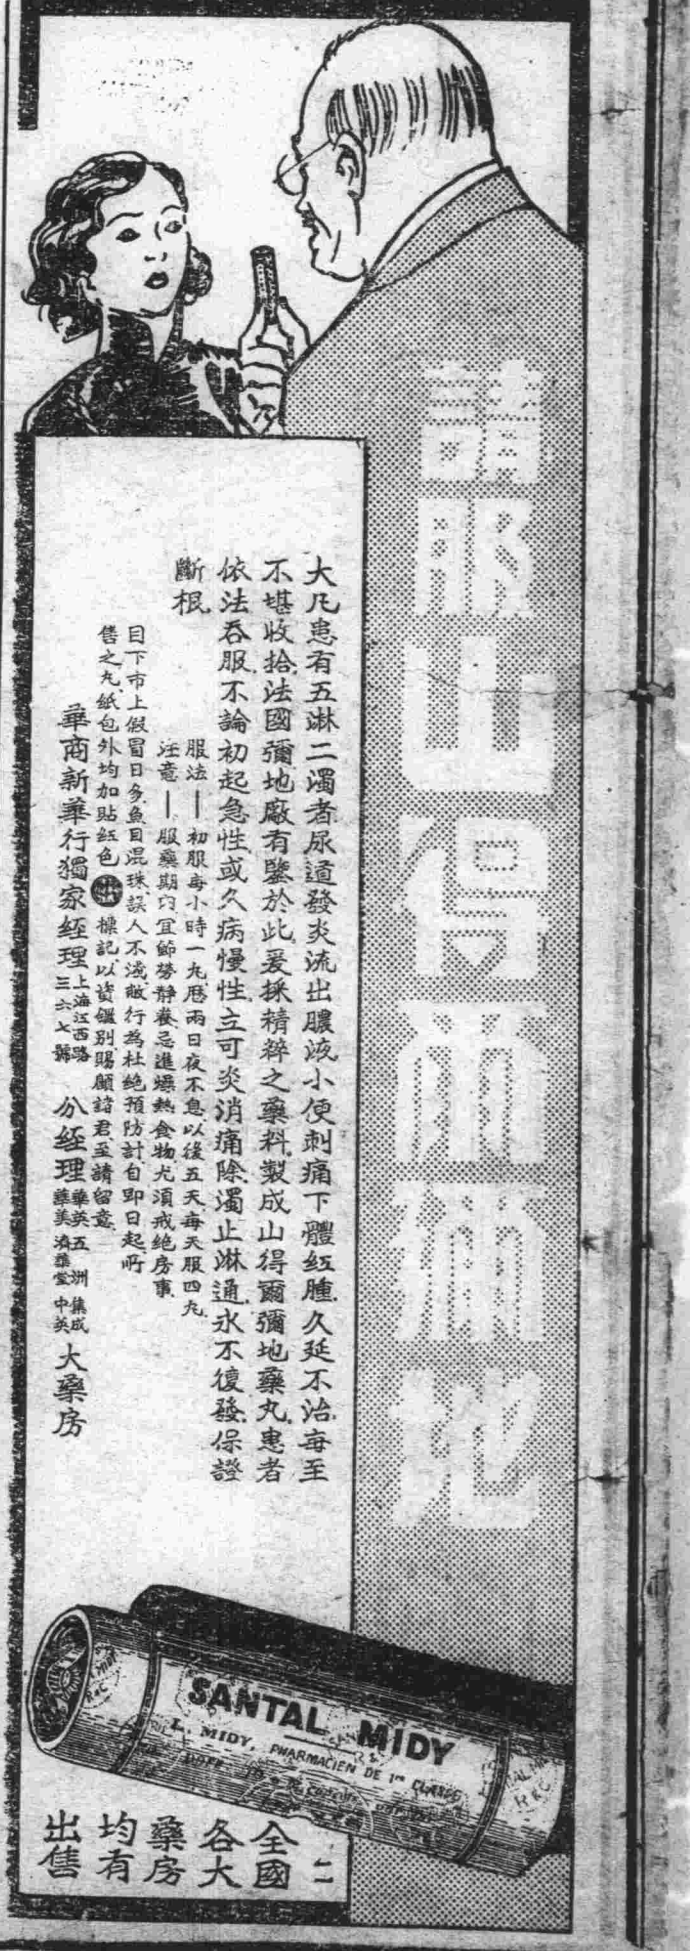 請服山得爾彌地
大凡患有五淋二濁者尿道發炎流出膿液小便刺痛下體紅腫久延不治每至
不堪收拾法國彌地廠有鑒於此爰採精粹之藥料製成山得爾彌地藥丸患者
依法吞服不論初起急性或久病慢性立可炎消痛除濁止淋通永不復發保證
斷根
服法——初服每小時一丸歷兩日夜不息以後五天每天服四丸
注意——服藥期內宜節勞靜養忌進燥熱食物尤須戒絕房事
目下市上假冒日多魚目混珠誤人不淺敝行為杜絕預防計自即日起所
售之丸紙包外均加貼紅色 標記以資鑑別賜顧諸君至請留意
華商新華行獨家經理 上海江西路三六七號 分經理 華英 五洲 集成 華美 濟華堂 中英 大藥房
SANTAL MIDY
L. MIDY, PHARMACIEN DE 1re CLASSE
全國各大藥房均有出售
二